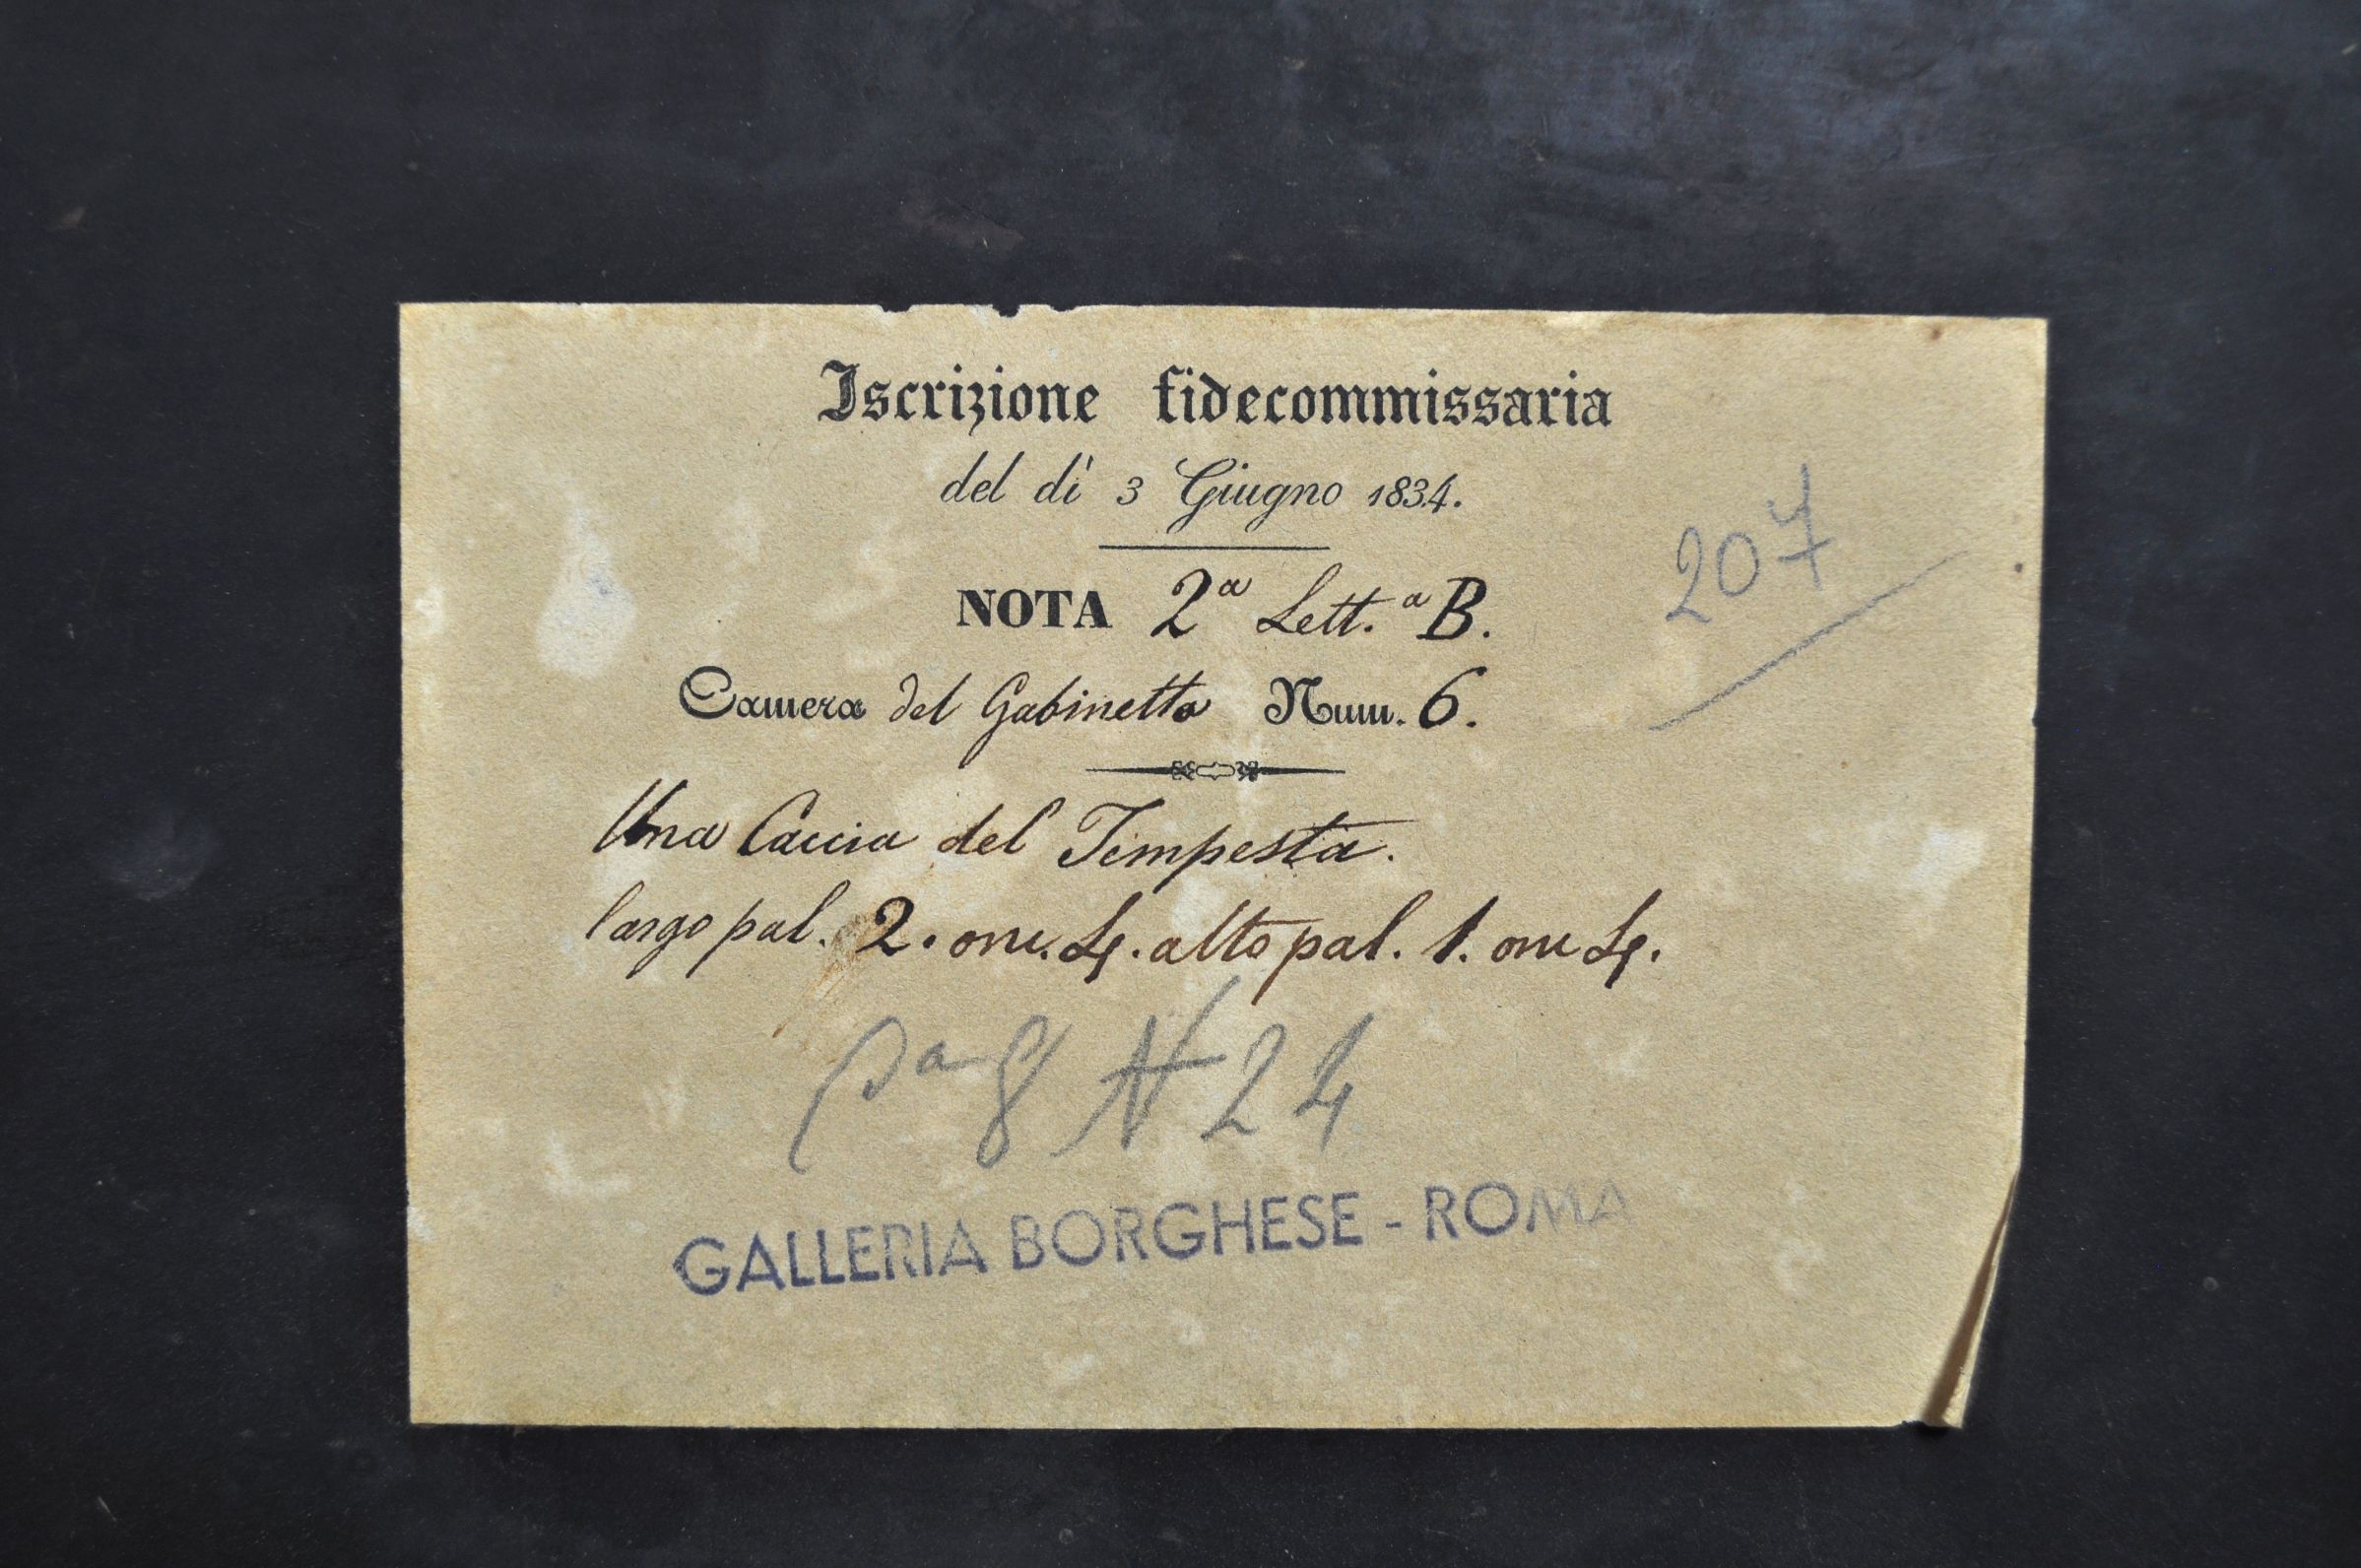 Iscrizione fidecommissaria
del dì 3 Giugno 1834.
207
NOTA 2ª Lett.ª B.
Camera del Gabinetto Num. 6.
Una Caccia del Tempesta.
largo pal. 2. onc. 4. alto pal. 1. onc 4.
Pag 8 N 24
GALLERIA BORGHESE - ROMA